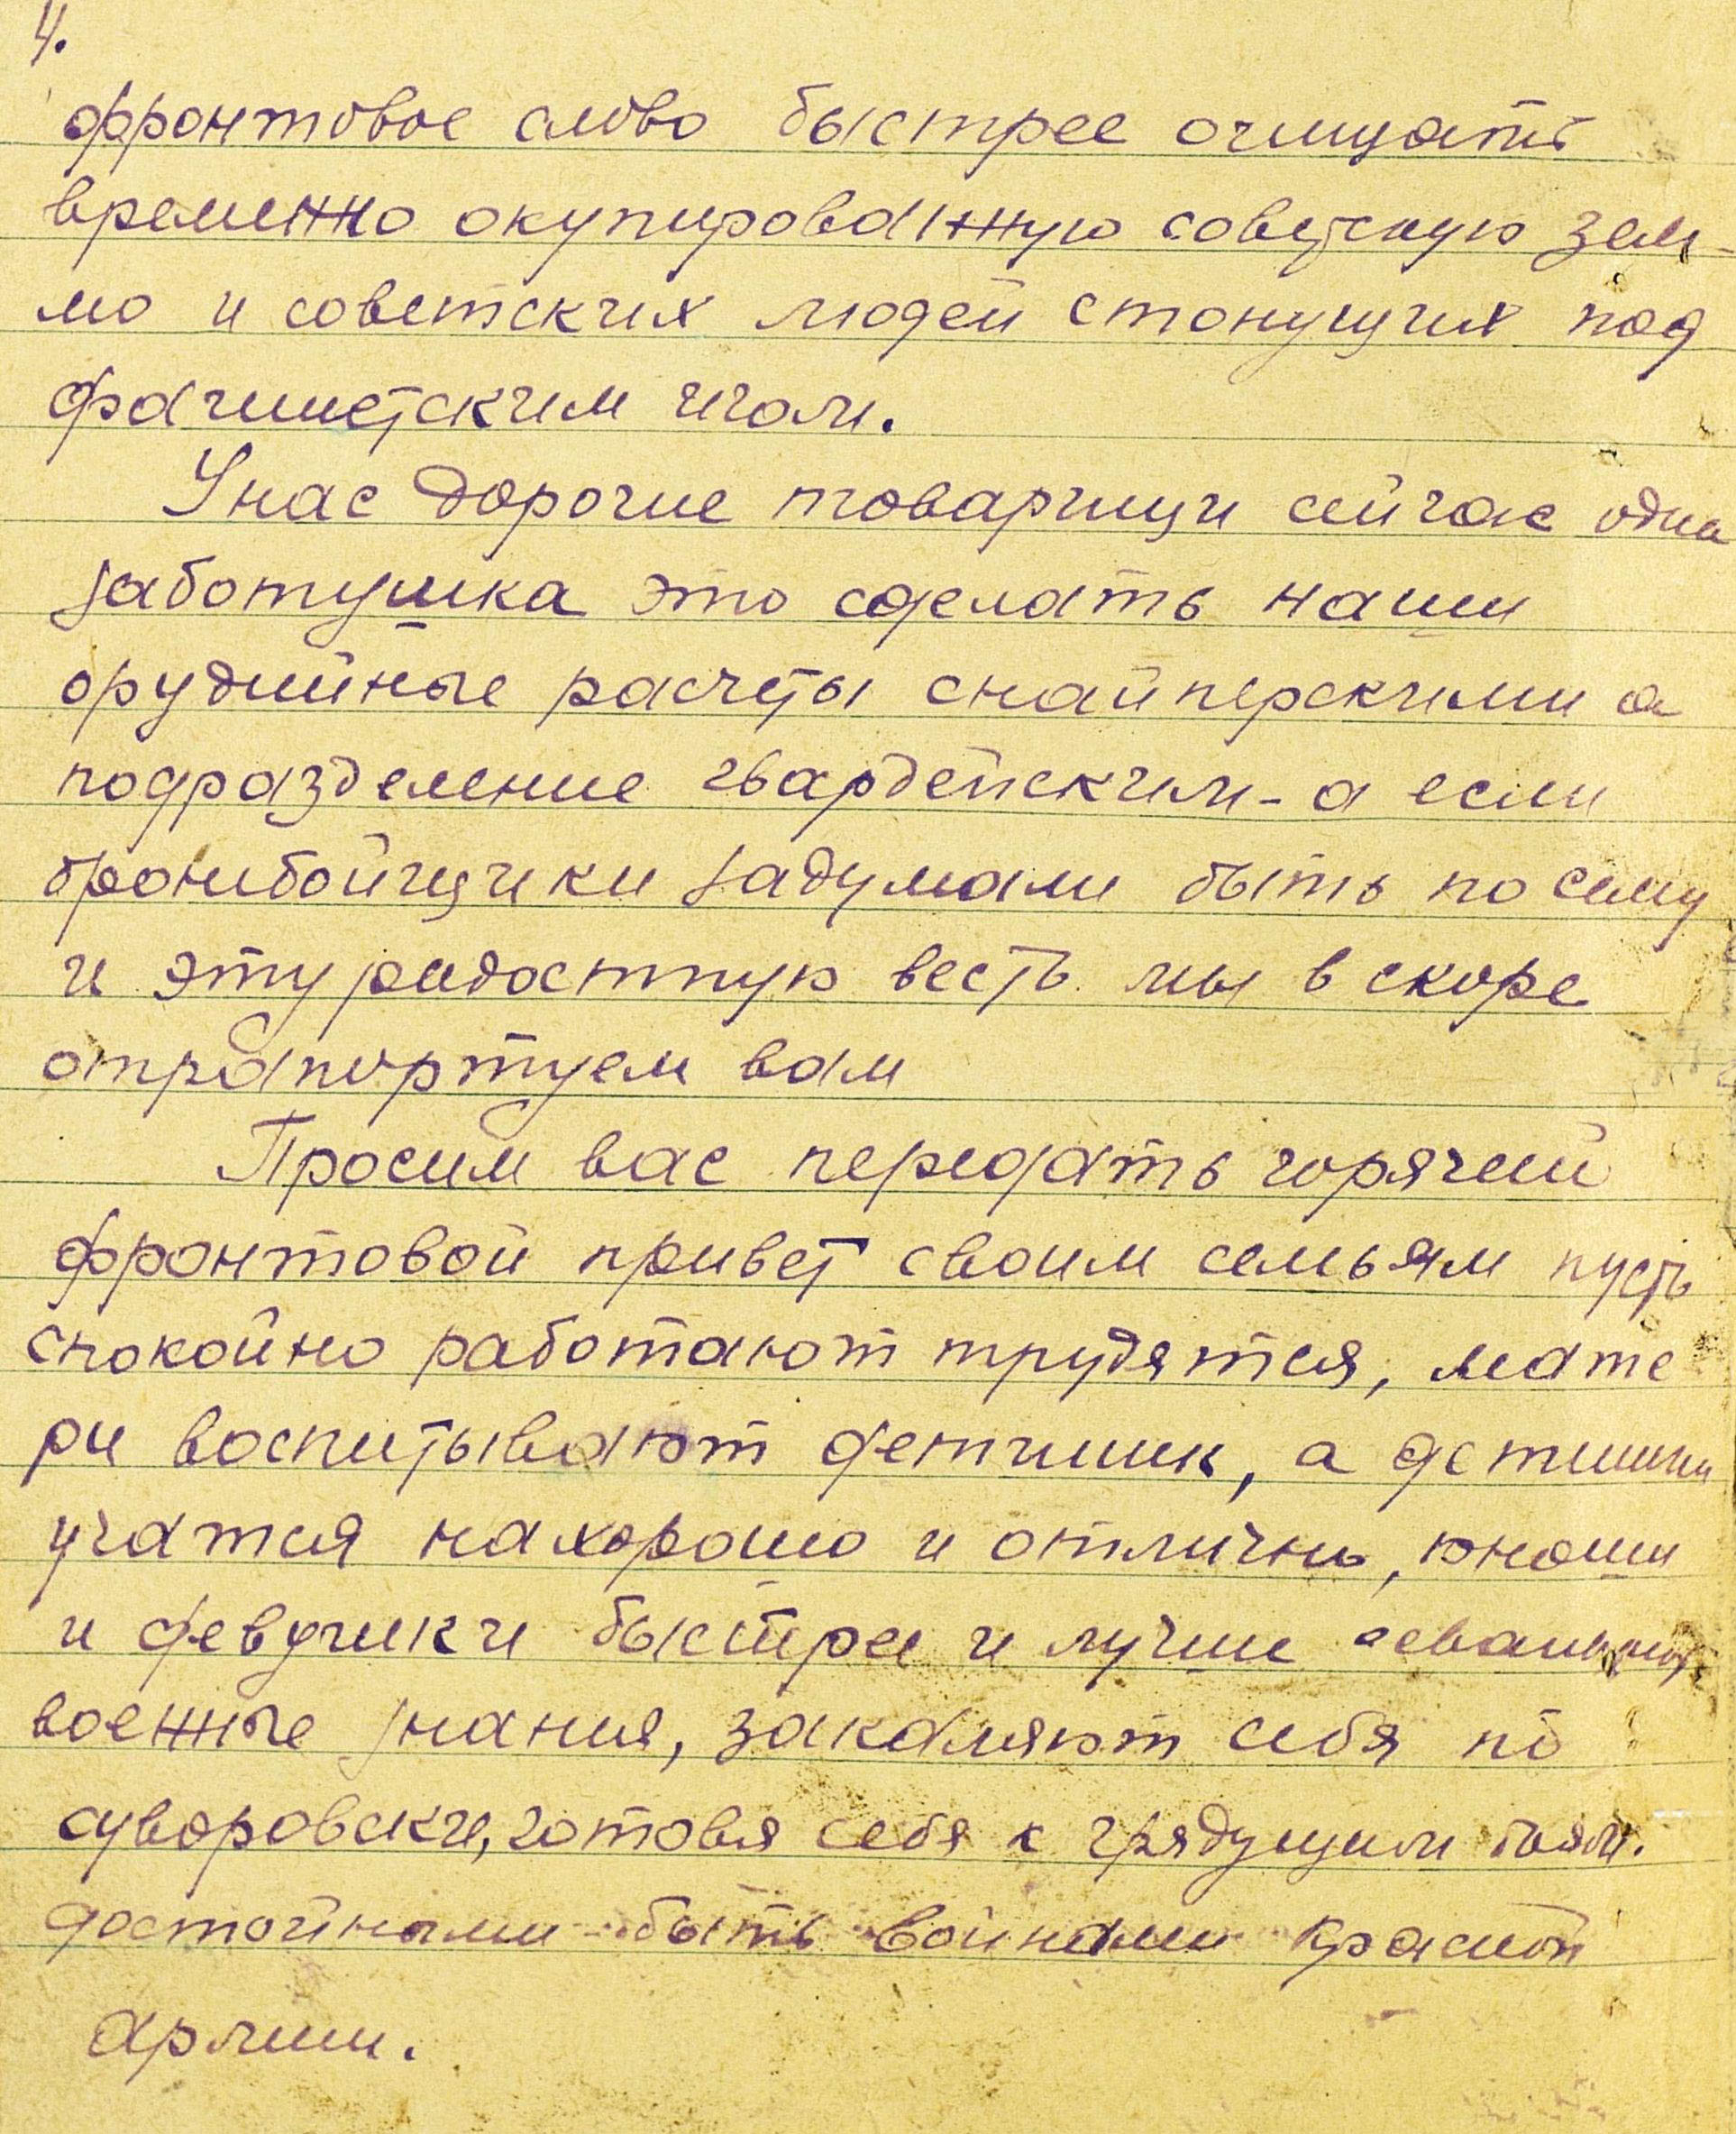 4.
фронтовое слово быстрее очищать
временно окупированную советскую зем-
лю и советских людей стонущих под
фачшистским игом.
У нас дорогие товарищи сейчас одна
заботушка это сделать наши
орудийные расчеты снайперскими а
подразделение гвардейским - а если
бронибойщики задумали быть по сему
и эту радостную весть мы в скоре
отрапортуем вам
Просим вас передать горячий
фронтовой привет своим семьям пусть
спокойно работают трудятся, мате
ри воспитывают детишек, а детишки
учатся на хорошо и отлично, юноши
и девушки быстрей и лучше осваивают
военные знания, закаляют себя по
суворовски, готовя себя к грядущим боям.
достойными быть воинами красной
армии.